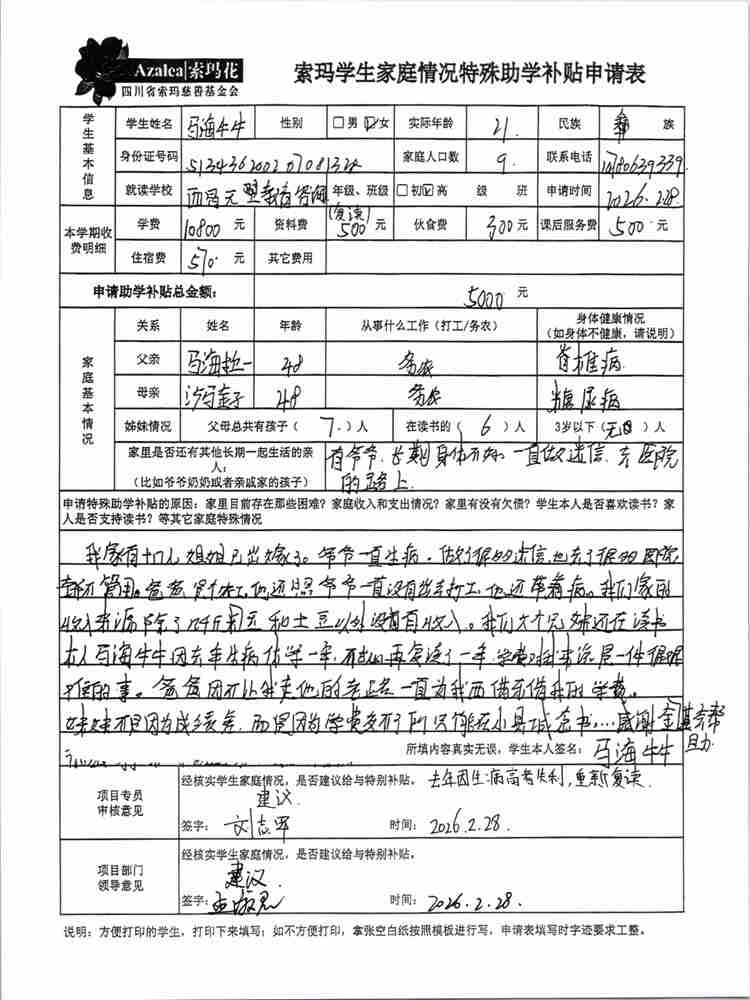 Azalea 索玛花
四川省索玛慈善基金会
索玛学生家庭情况特殊助学补贴申请表
学生基本信息
学生姓名 马海牛牛 性别 □男 ☑女 实际年龄 21. 民族 彝 族
身份证号码 家庭人口数 9. 联系电话
就读学校 年级、班级 □初☑高 级 班 申请时间 2026.2.28.
(复读)
本学期收费明细
学费 10800 元 资料费 500 元 伙食费 300 元 课后服务费 500 元
住宿费 570. 元 其它费用
申请助学补贴总金额: 5000 元
家庭基本情况
关系 姓名 年龄 从事什么工作(打工/务农) 身体健康情况
(如身体不健康,请说明)
父亲 马海拉一 48 务农 脊椎病.
母亲 48 务农 糖尿病
姊妹情况 父母总共有孩子( 7. )人 在读书的( 6 )人 3岁以下( )人
家里是否还有其他长期一起生活的亲人:
(比如爷爷奶奶或者亲戚家的孩子)
有爷爷.长期身体不好.一直做迷信.去医院
的路上.
申请特殊助学补贴的原因:家里目前存在那些困难?家庭收入和支出情况?家里有没有欠债?学生本人是否喜欢读书?家
人是否支持读书?等其它家庭特殊情况
我家有十口人 姐姐已出嫁了。爷爷一直生病.做了很多迷信,也去了很多医院
都不管用。爸爸 照 爷爷一直没有出去打工.他还带着病.我们家的
收入来源除了 和土豆以外没有收入。我们六个兄妹还在读书
本人马海牛牛因去年生病休学一年, 再复读了一年.学费对我来说是一件很艰
的事。爸爸因不让我走他的老路一直为我 借我的学费。
妹妹不是因为成绩差,而是因为学费 所以只能在小县城念书....感谢金基会帮
助
所填内容真实无误,学生本人签名: 马海牛牛
项目专员
审核意见
经核实学生家庭情况,是否建议给与特别补贴。 去年因生病高考失利,重新复读.
建议.
签字: 时间: 2026.2.28.
项目部门
领导意见
经核实学生家庭情况,是否建议给与特别补贴。
建议.
签字: 时间: 2026.2.28.
说明:方便打印的学生,打印下来填写;如不方便打印,拿张空白纸按照模板进行写,申请表填写时字迹要求工整。